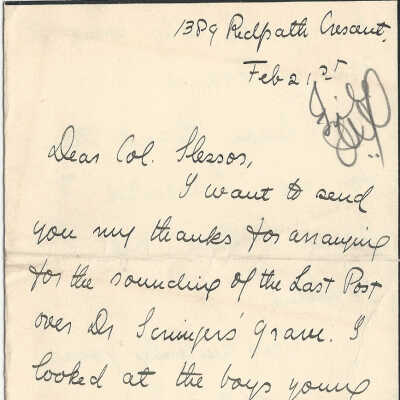 1389 Redpath Crescent,
Feb 21st
File
Dear Col. Slessor,
I want to send
you my thanks for arranging
for the sounding of the Last Post
over Dr Scringers' grave. I
looked at the boys young